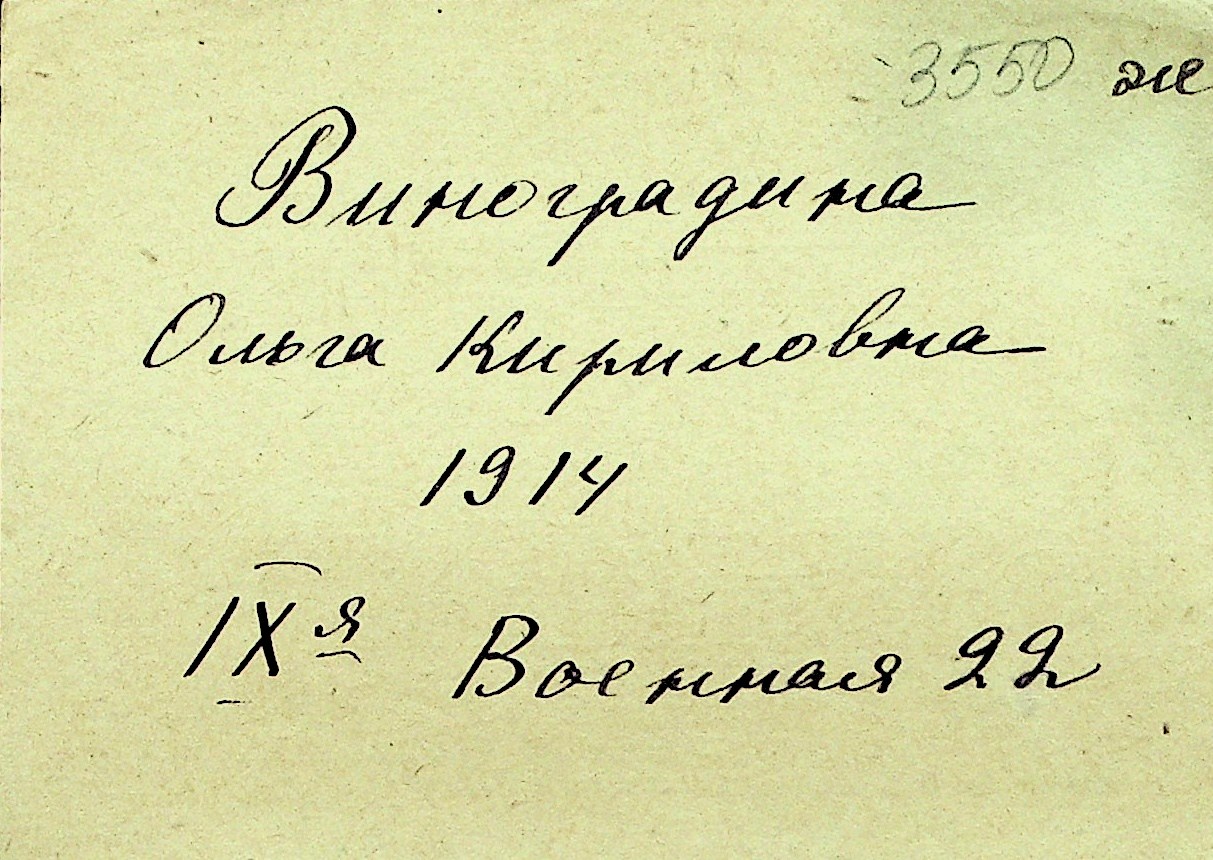 3550 ж
Виноградина
Ольга Кириловна
1914
IXя Военная 22